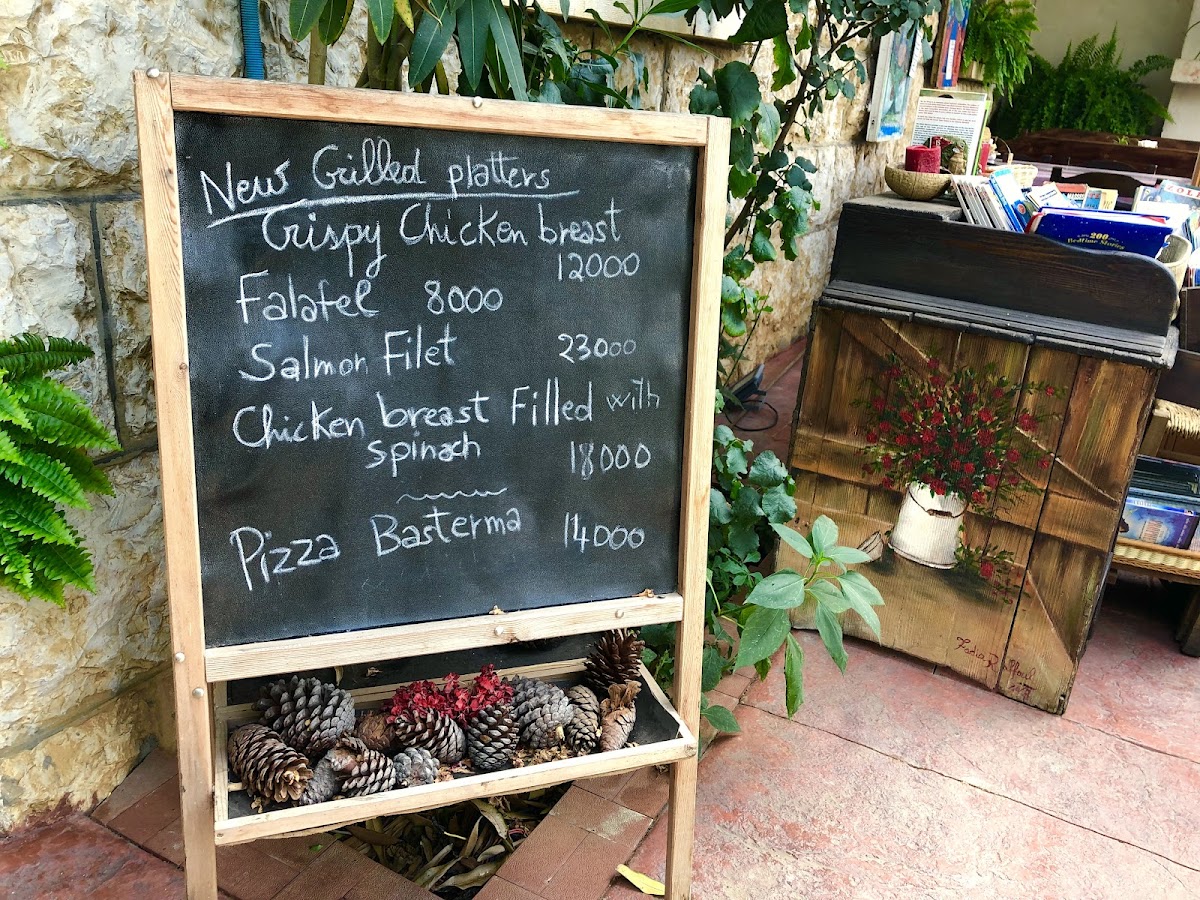 New Grilled platters
Crispy Chicken breast
12000
Falafel 8000
Salmon Filet 23000
Chicken breast Filled with
spinach 18000
Pizza Basterma 14000
200
Bedtime Stories
ZOL